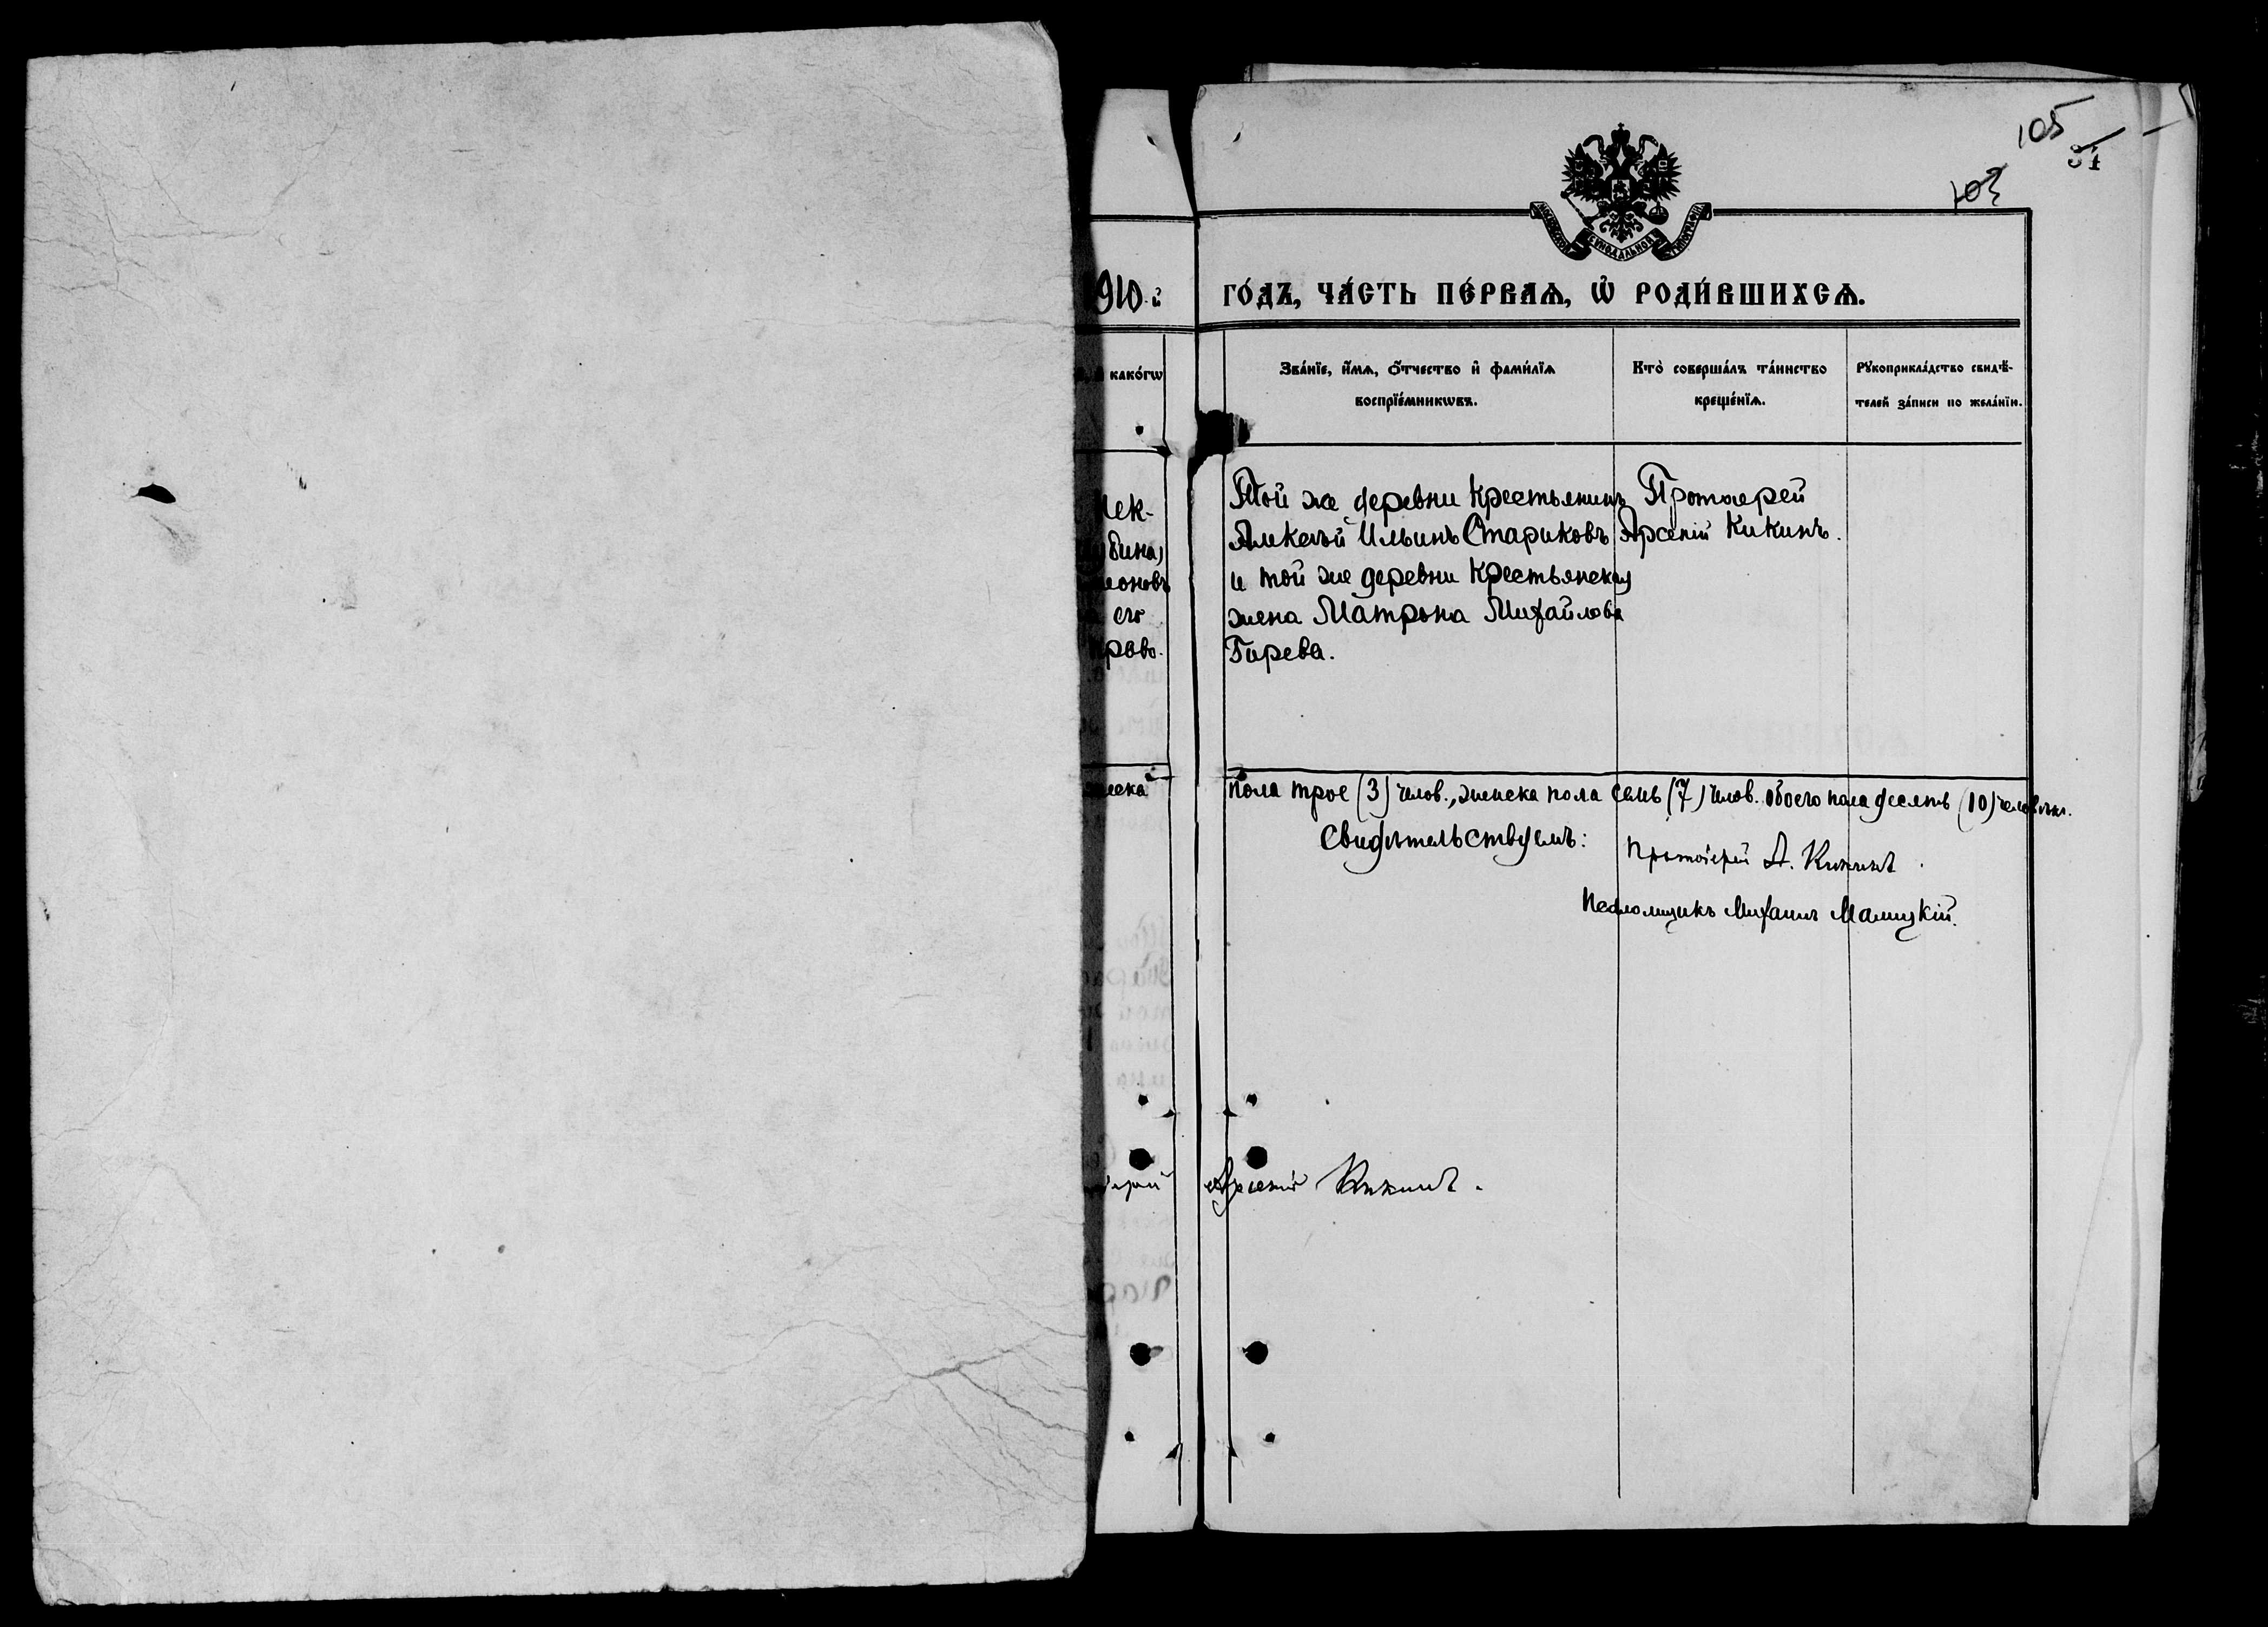 105
34
103
МОСКОВСКОЙ СѴНОДАЛЬНОЙ ТИПОГРАФІИ
910-й
ГО́ДЪ, ЧА́СТЬ ПЕ́РВАѦ, Ѡ҆ РОДИ́ВШИХСѦ.
како́гѡ
Зва́нїе, и҆́мѧ, ѻ҆́тчество и҆ фами́лїѧ
воспрїе́мникѡвъ.
Кто̀ соверша́лъ та́инство
креще́нїѧ.
Рꙋкоприкла́дство свидѣ́-
телей за́писи по жела́нїю.
Той же деревни крестьянинъ
Алексѣй Ильинъ Стариковъ
и той же деревни крестьянская
жена Матрона Михайлова
Гирева.
Протоіерей
Арсеній Кикинъ.
пола трое (3) челов., женска пола семь (7) челов. обоего пола десять (10) человѣкъ.
Свидѣтельствуемъ:
Протоіерей А. Кикинъ
Псаломщикъ Михаилъ Малицкій.
Арсеній Кикинъ.